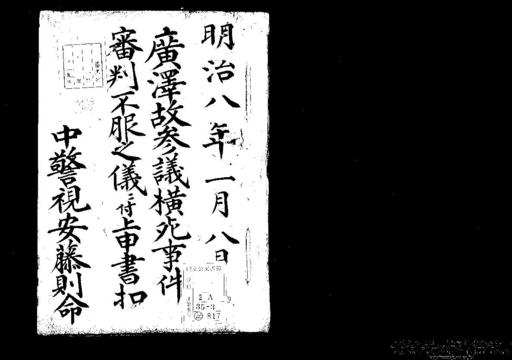 明治八年一月八日
廣澤故参議横死事件
審判不服之儀ニ付上申書扣
中警視安藤則命
2 A
35-3
817